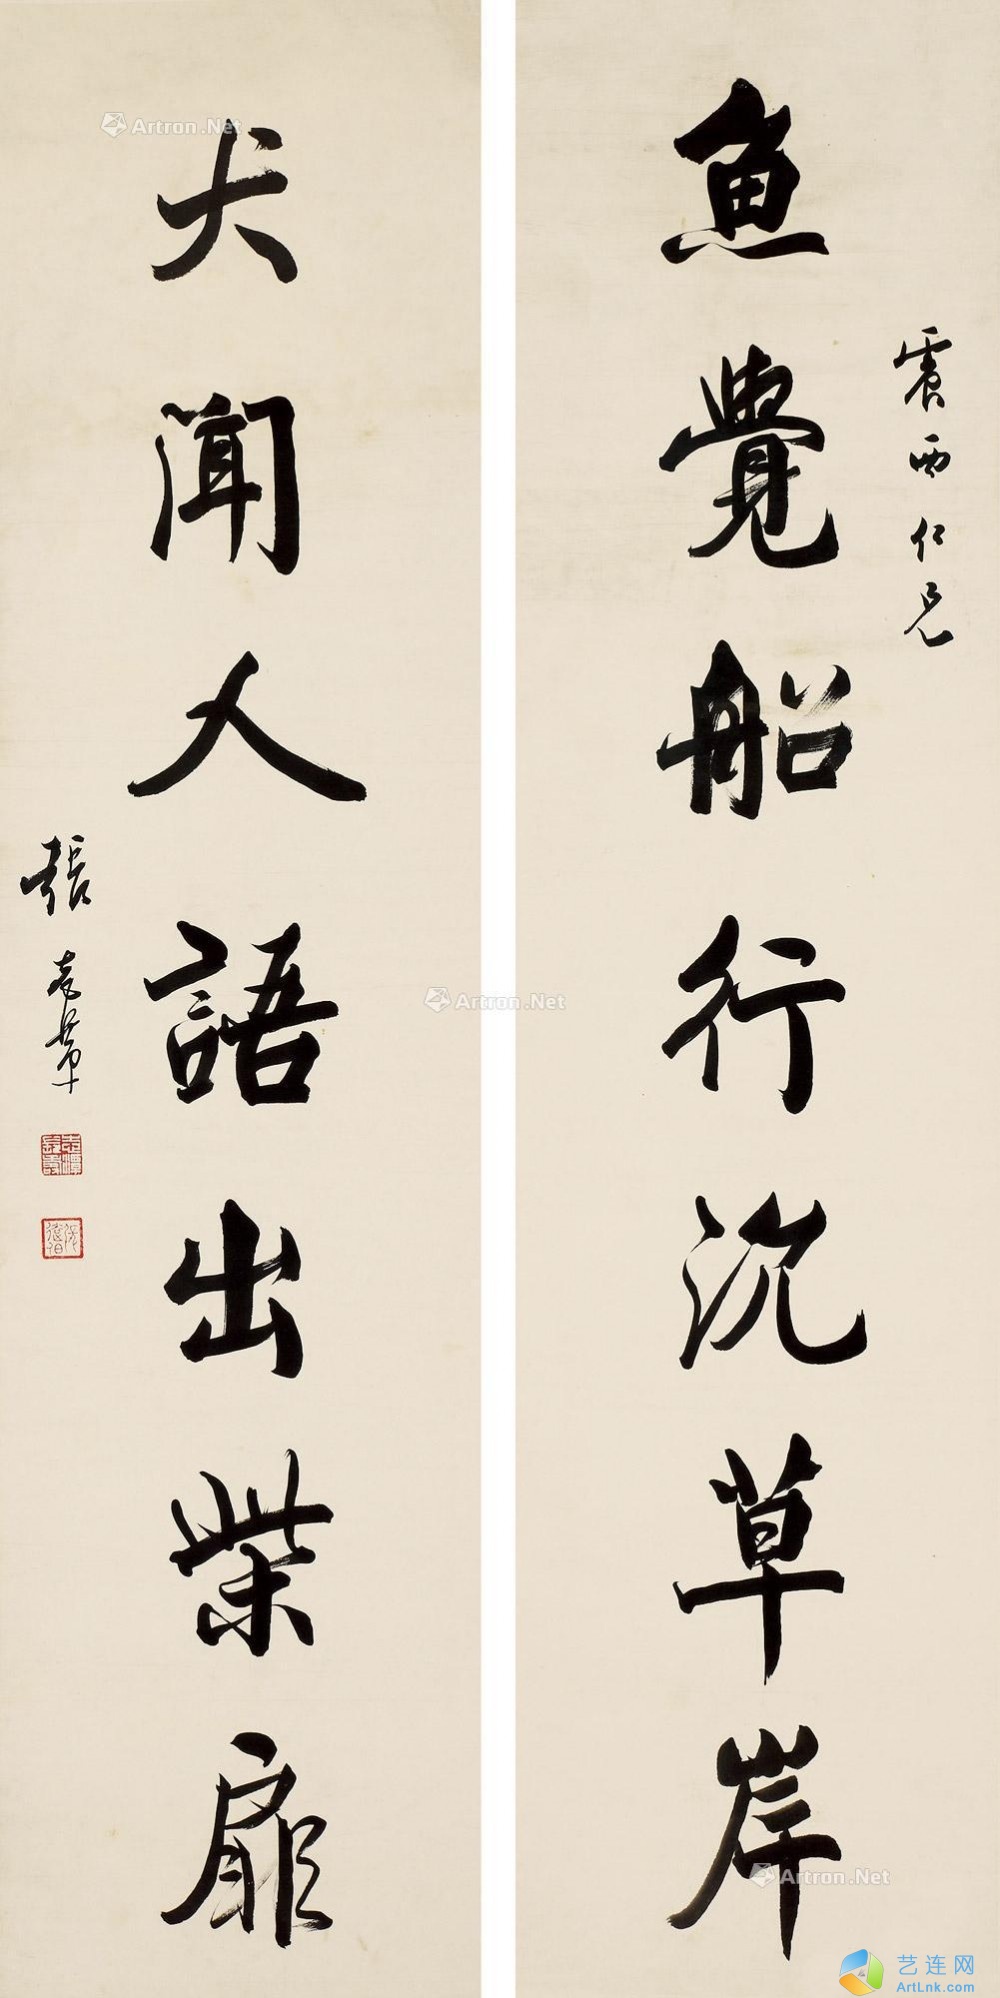 魚覺船行沉草岸
震西仁兄
犬聞人語出柴扉
張
Artron.Net
Artron.Net
Artron.Net
艺连网
ArtLnk.com